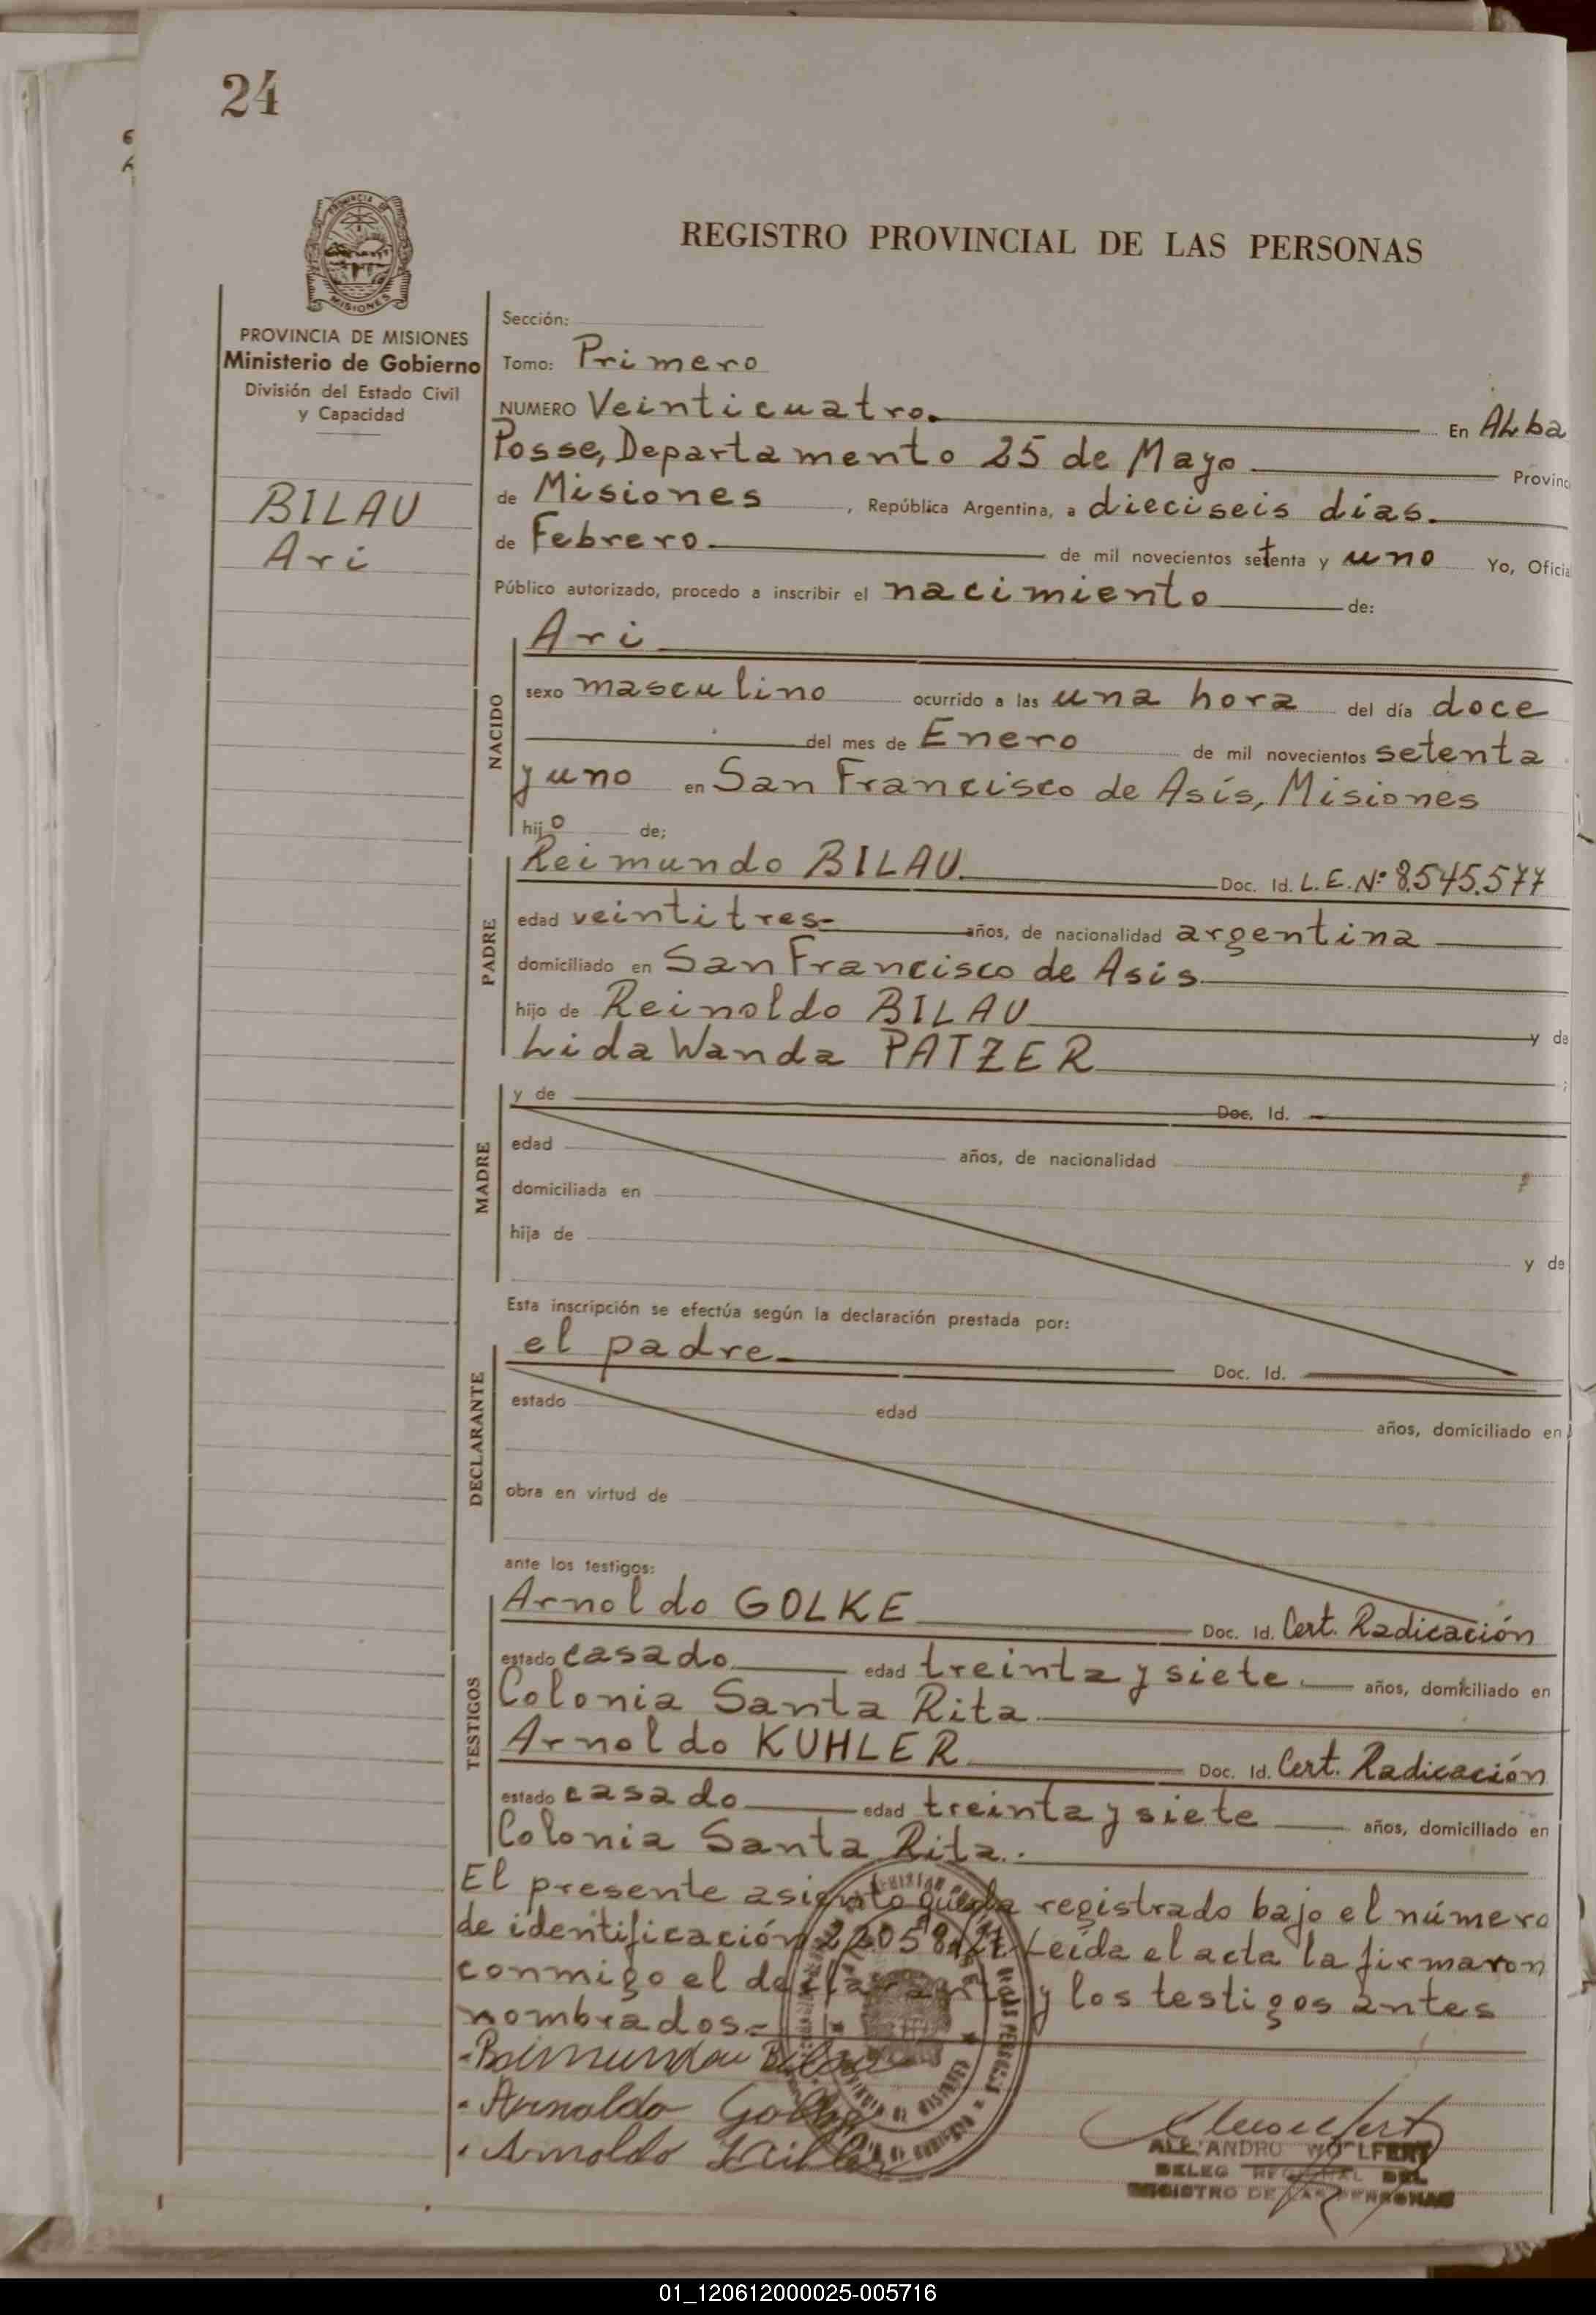 24
REGISTRO PROVINCIAL DE LAS PERSONAS
PROVINCIA DE
MISIONES
PROVINCIA DE MISIONES
Ministerio de Gobierno
División del Estado Civil
y Capacidad
BILAU
Ari
Sección:
Tomo: Primero
NUMERO Veinticuatro. En Alba
Posse, Departamento 25 de Mayo Provinc
de Misiones, República Argentina, a dieciseis días.
de Febrero. de mil novecientos setenta y uno Yo, Oficia
Público autorizado, procedo a inscribir el nacimiento de:
NACIDO
Ari
sexo masculino ocurrido a las una hora del día doce
del mes de Enero de mil novecientos setenta
y uno en San Francisco de Asís, Misiones
hijo de;
PADRE
Reimundo BILAU. Doc. Id. L.E. Nº 8.545.577
edad veintitres- años, de nacionalidad argentina
domiciliado en San Francisco de Asis.
hijo de Reinoldo BILAU y de
Lida Wanda PATZER ;
MADRE
y de Doc. Id.
edad años, de nacionalidad
domiciliada en
hija de y de
Esta inscripción se efectúa según la declaración prestada por:
DECLARANTE
el padre. Doc. Id.
estado edad años, domiciliado en
obra en virtud de
ante los testigos:
TESTIGOS
Arnoldo GOLKE Doc. Id. Cert. Radicación
estado casado edad treinta y siete. años, domiciliado en
Colonia Santa Rita.
Arnoldo KUHLER Doc. Id. Cert. Radicación
estado casado edad treinta y siete años, domiciliado en
Colonia Santa Rita.
El presente asiento queda registrado bajo el número
de identificación Leída el acta la firmaron
conmigo el declarante y los testigos antes
nombrados.-
Reimundo Bilau
Arnoldo Golke
Arnoldo
ALEJANDRO WOLFERT
DELEG REGIONAL DEL
REGISTRO DE LAS PERSONAS
01_120612000025-005716